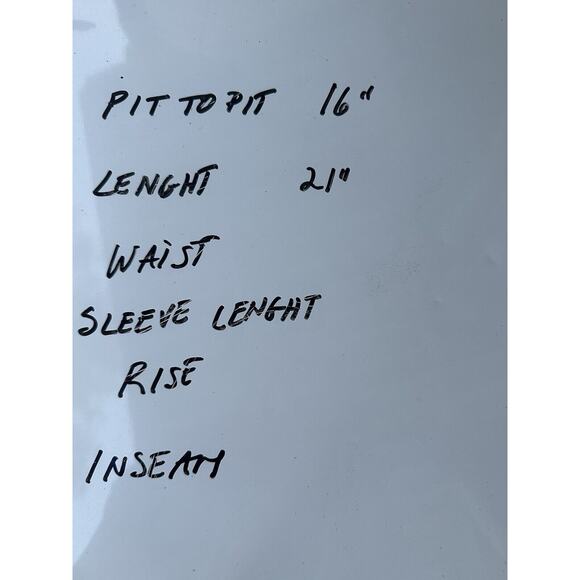 PIT TO PIT 16"
LENGHT 21"
WAIST
SLEEVE LENGHT
RISE
INSEAM